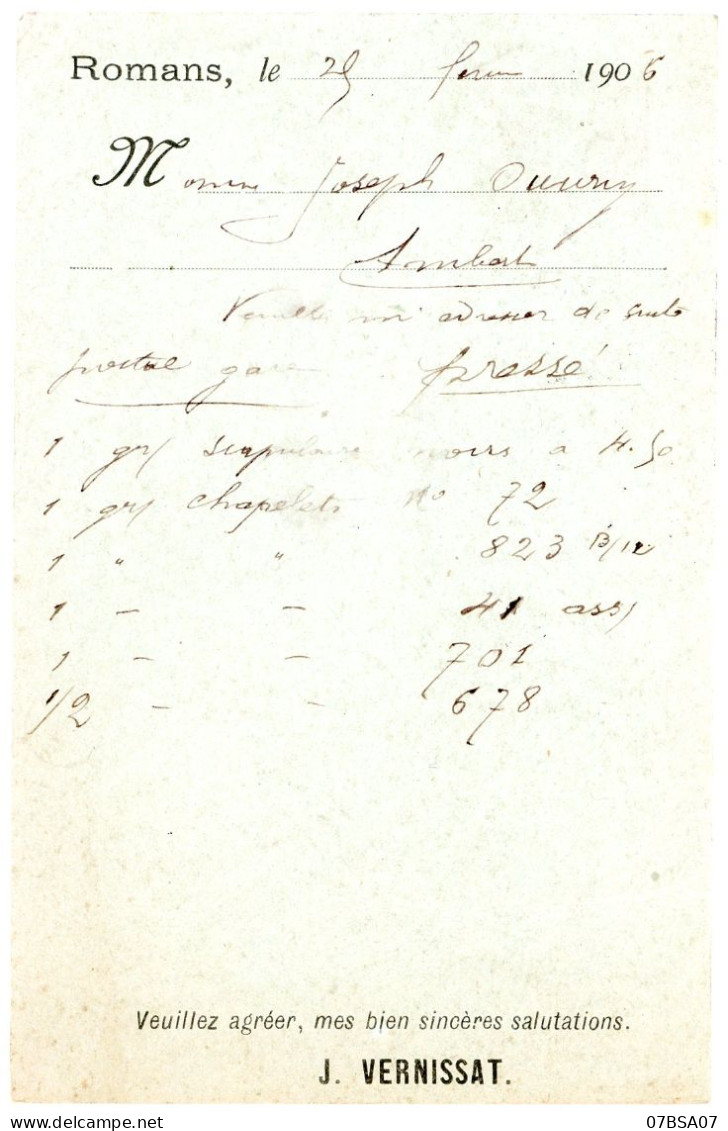 Romans, le 25 1906
Monsieur Joseph
Ambert
Veuillez m'adresser de suite
postal gare pressé
1 gr/ scapulaires noirs à 4.50
1 gr/ chapelets No 72
1 " " 823 B/12
1 — — 41 ass/
1 — — 701
1/2 — — 678
Veuillez agréer, mes bien sincères salutations.
J. VERNISSAT.
07BSA07